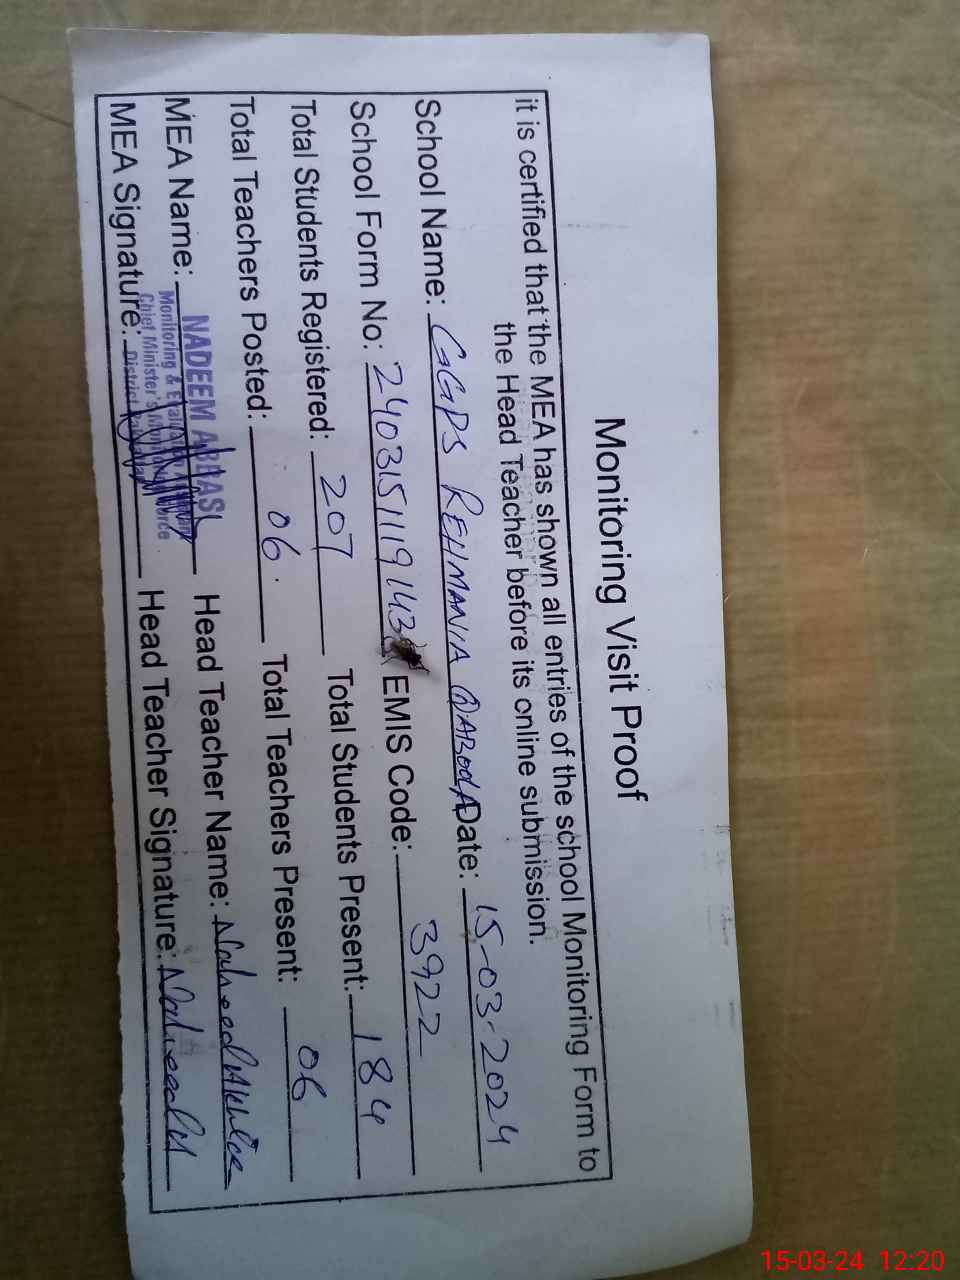 Monitoring Visit Proof
it is certified that the MEA has shown all entries of the school Monitoring Form to
the Head Teacher before its online submission.
School Name: GGPS REHMANIA Date: 15-03-2024
School Form No: 240315119143 EMIS Code: 3922
Total Students Registered: 207 Total Students Present: 184
Total Teachers Posted: 06. Total Teachers Present: 06
MEA Name: NADEEM ABBASI Head Teacher Name: Naheed Akhter
Monitoring &
Chief Minister's Monitoring Force
MEA Signature: District Head Teacher Signature: Naheed
15-03-24 12:20